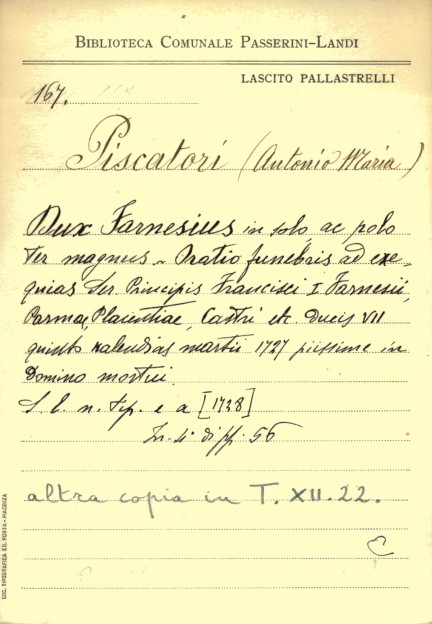 BIBLIOTECA COMUNALE PASSERINI-LANDI
LASCITO PALLASTRELLI
167.
Piscatori (Antonio Maria)
Dux Farnesius in solo, ac polo
ter magnus - Oratio funebris ad exe-
quias Ser Principis Francisci I Farnesii,
Parmae, Placentiae, Castri etc. Ducis VII
quinto kalendas martii 1727 piissime in
Domino mortui.
S. l. n. tip. e a [1728]
In-4° di pp. 56
altra copia in T. XII. 22.
SOC. TIPOGRAFICA ED. PORTA - PIACENZA